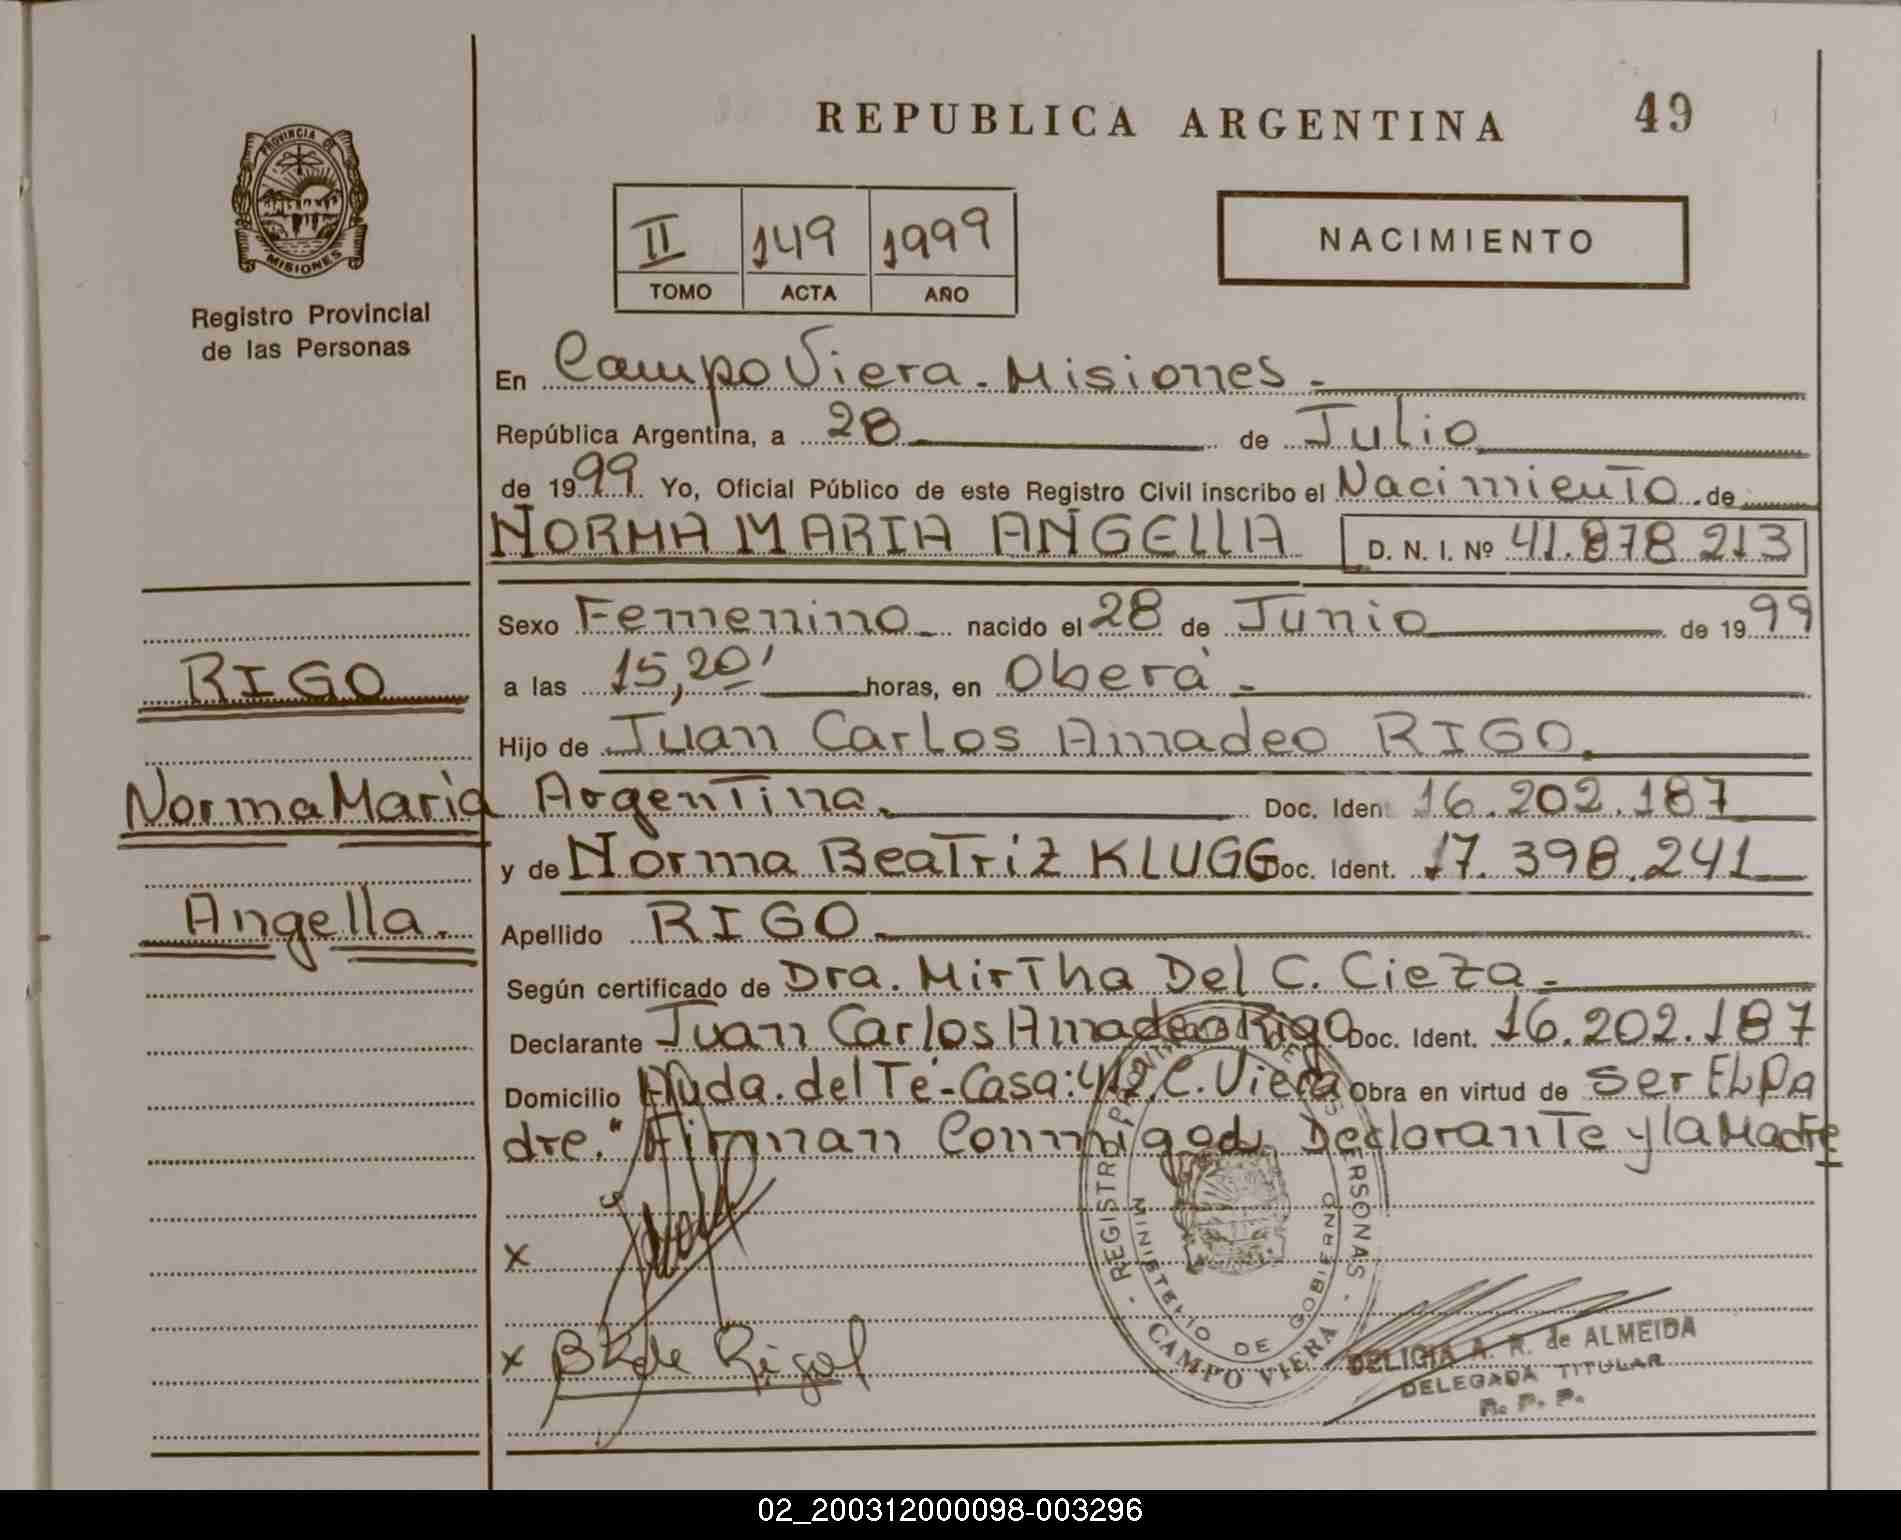 REPUBLICA ARGENTINA
49
PROVINCIA DE
MISIONES
Registro Provincial
de las Personas
II 149 1999
TOMO ACTA AÑO
NACIMIENTO
En Campo Viera - Misiones -
República Argentina, a 28 de Julio
de 1999 Yo, Oficial Público de este Registro Civil inscribo el Nacimiento de
NORMA MARIA ANGELLA D. N. I. Nº 41.878.213
Sexo Femenino nacido el 28 de Junio de 1999
a las 15,20' horas, en Oberá -
RIGO
Hijo de Juan Carlos Amadeo RIGO.
Norma María
Argentina. Doc. Ident 16.202.187
y de Norma Beatriz KLUGG Doc. Ident. 17.398.241
Angella.
Apellido RIGO
Según certificado de Dra. Mirtha Del C. Cieza -
Declarante Juan Carlos Amadeo Rigo Doc. Ident. 16.202.187
Domicilio Avda. del Té - Casa: 42. C. Viera Obra en virtud de ser EL Pa
dre." Firman Conmigo el Declarante y la Madre
x
x B K de Rigo
REGISTRO PROVINCIAL DE LAS PERSONAS
MINISTERIO DE GOBIERNO
CAMPO VIERA
DELICIA A. R. de ALMEIDA
DELEGADA TITULAR
R. P. P.
02_200312000098-003296